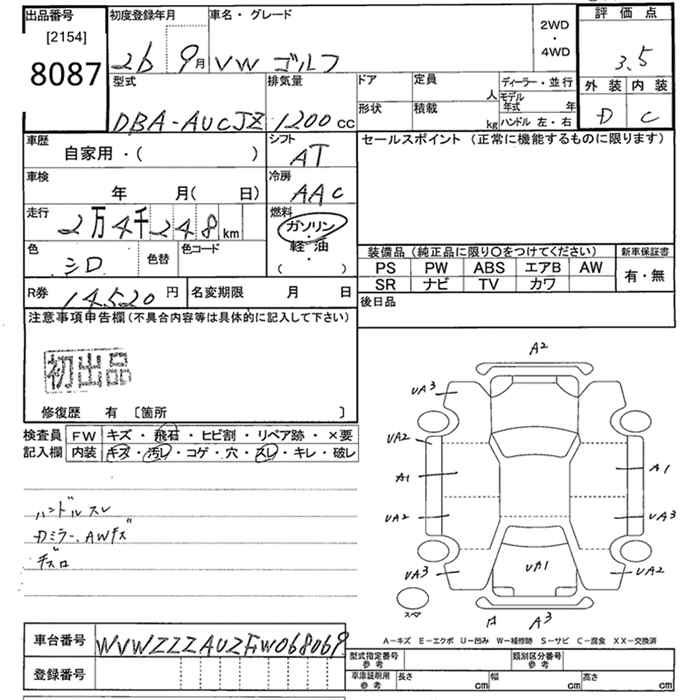 出品番号
[2154]
8087
初度登録年月
26 9月
車名・グレード
VW ゴルフ
2WD
・
4WD
評価点
3.5
外装 内装
D C
型式
DBA-AUCJZ
排気量
1200cc
ドア
定員
人
ディーラー・並行
モデル年式 年
形状
積載
kg
ハンドル 左・右
車歴
自家用・( )
シフト
AT
セールスポイント(正常に機能するものに限ります)
車検
年 月( 日)
冷房
AAC
走行
2万4千248km
燃料
ガソリン
・
軽油
( ・ )
色
シロ
色替
色コード
装備品(純正品に限り〇をつけてください)
新車保証書
PS PW ABS エアB AW
有・無
SR ナビ TV カワ
R券 14,520円
名変期限 月 日
後日品
注意事項申告欄(不具合内容等は具体的に記入して下さい)
初出品
修復歴 有 〔箇所 〕
検査員
記入欄
FW キズ・飛石・ヒビ割・リペア跡・×要
内装 キズ・汚レ・コゲ・穴・スレ・キレ・破レ
ハンドルスレ
Dミラー、AWキズ
A2
UA3
UA2
A1
A1
UA2
UA3
UA3
UA1
UA2
スペア
A3
A-キズ E-エクボ U-凹み W-補修跡 S-サビ C-腐食 XX-交換済
車台番号 WVWZZZAUZFW068069
登録番号
型式指定番号
参考
類別区分番号
参考
車庫証明用
参考
長さ cm
幅 cm
高さ cm